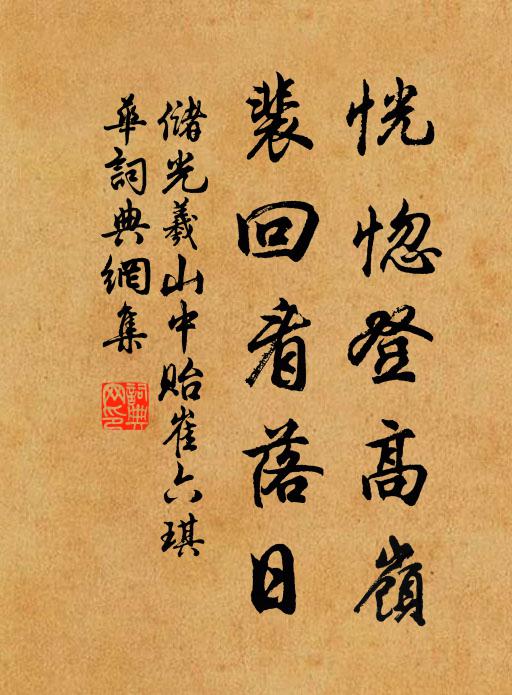 恍惚登高嶺
裴回看落日
儲光羲山中貽崔六琪
華詞典網集
詞典
网印